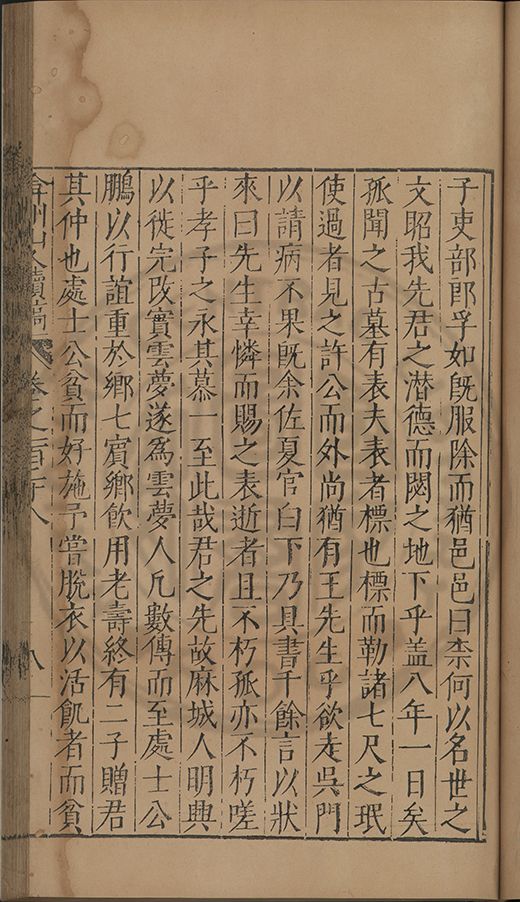 子吏部郎孚如既服除而猶邑邑曰柰何以名世之
文昭我先君之潛德而閟之地下乎盖八年一日矣
孤聞之古墓有表夫表者標也標而勒諸七尺之珉
使過者見之許公而外尚猶有王先生乎欲走吳門
以請病不果既余佐夏官白下乃具書千餘言以狀
來曰先生幸憐而賜之表逝者且不朽孤亦不朽嗟
乎孝子之永其慕一至此哉君之先故麻城人明興
以徙完改實雲夢遂爲雲夢人凢數傳而至處士公
鵬以行誼重於鄉七賓鄉飲用老壽終有二子贈君
其仲也處士公貧而好施予嘗脫衣以活飢者而貧
弇州山人續稿 卷之一百十八 八